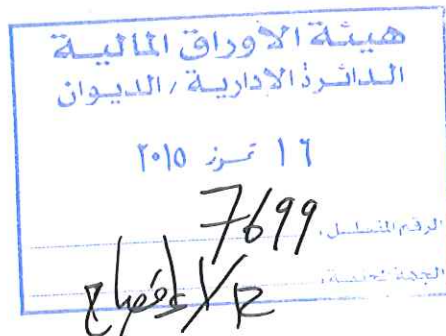 هيئة الأوراق المالية
الدائرة الادارية / الديوان
١٦ تموز ٢٠١٥
الرقم المتسلسل: 7699
الجهة المختصة: الافصاح